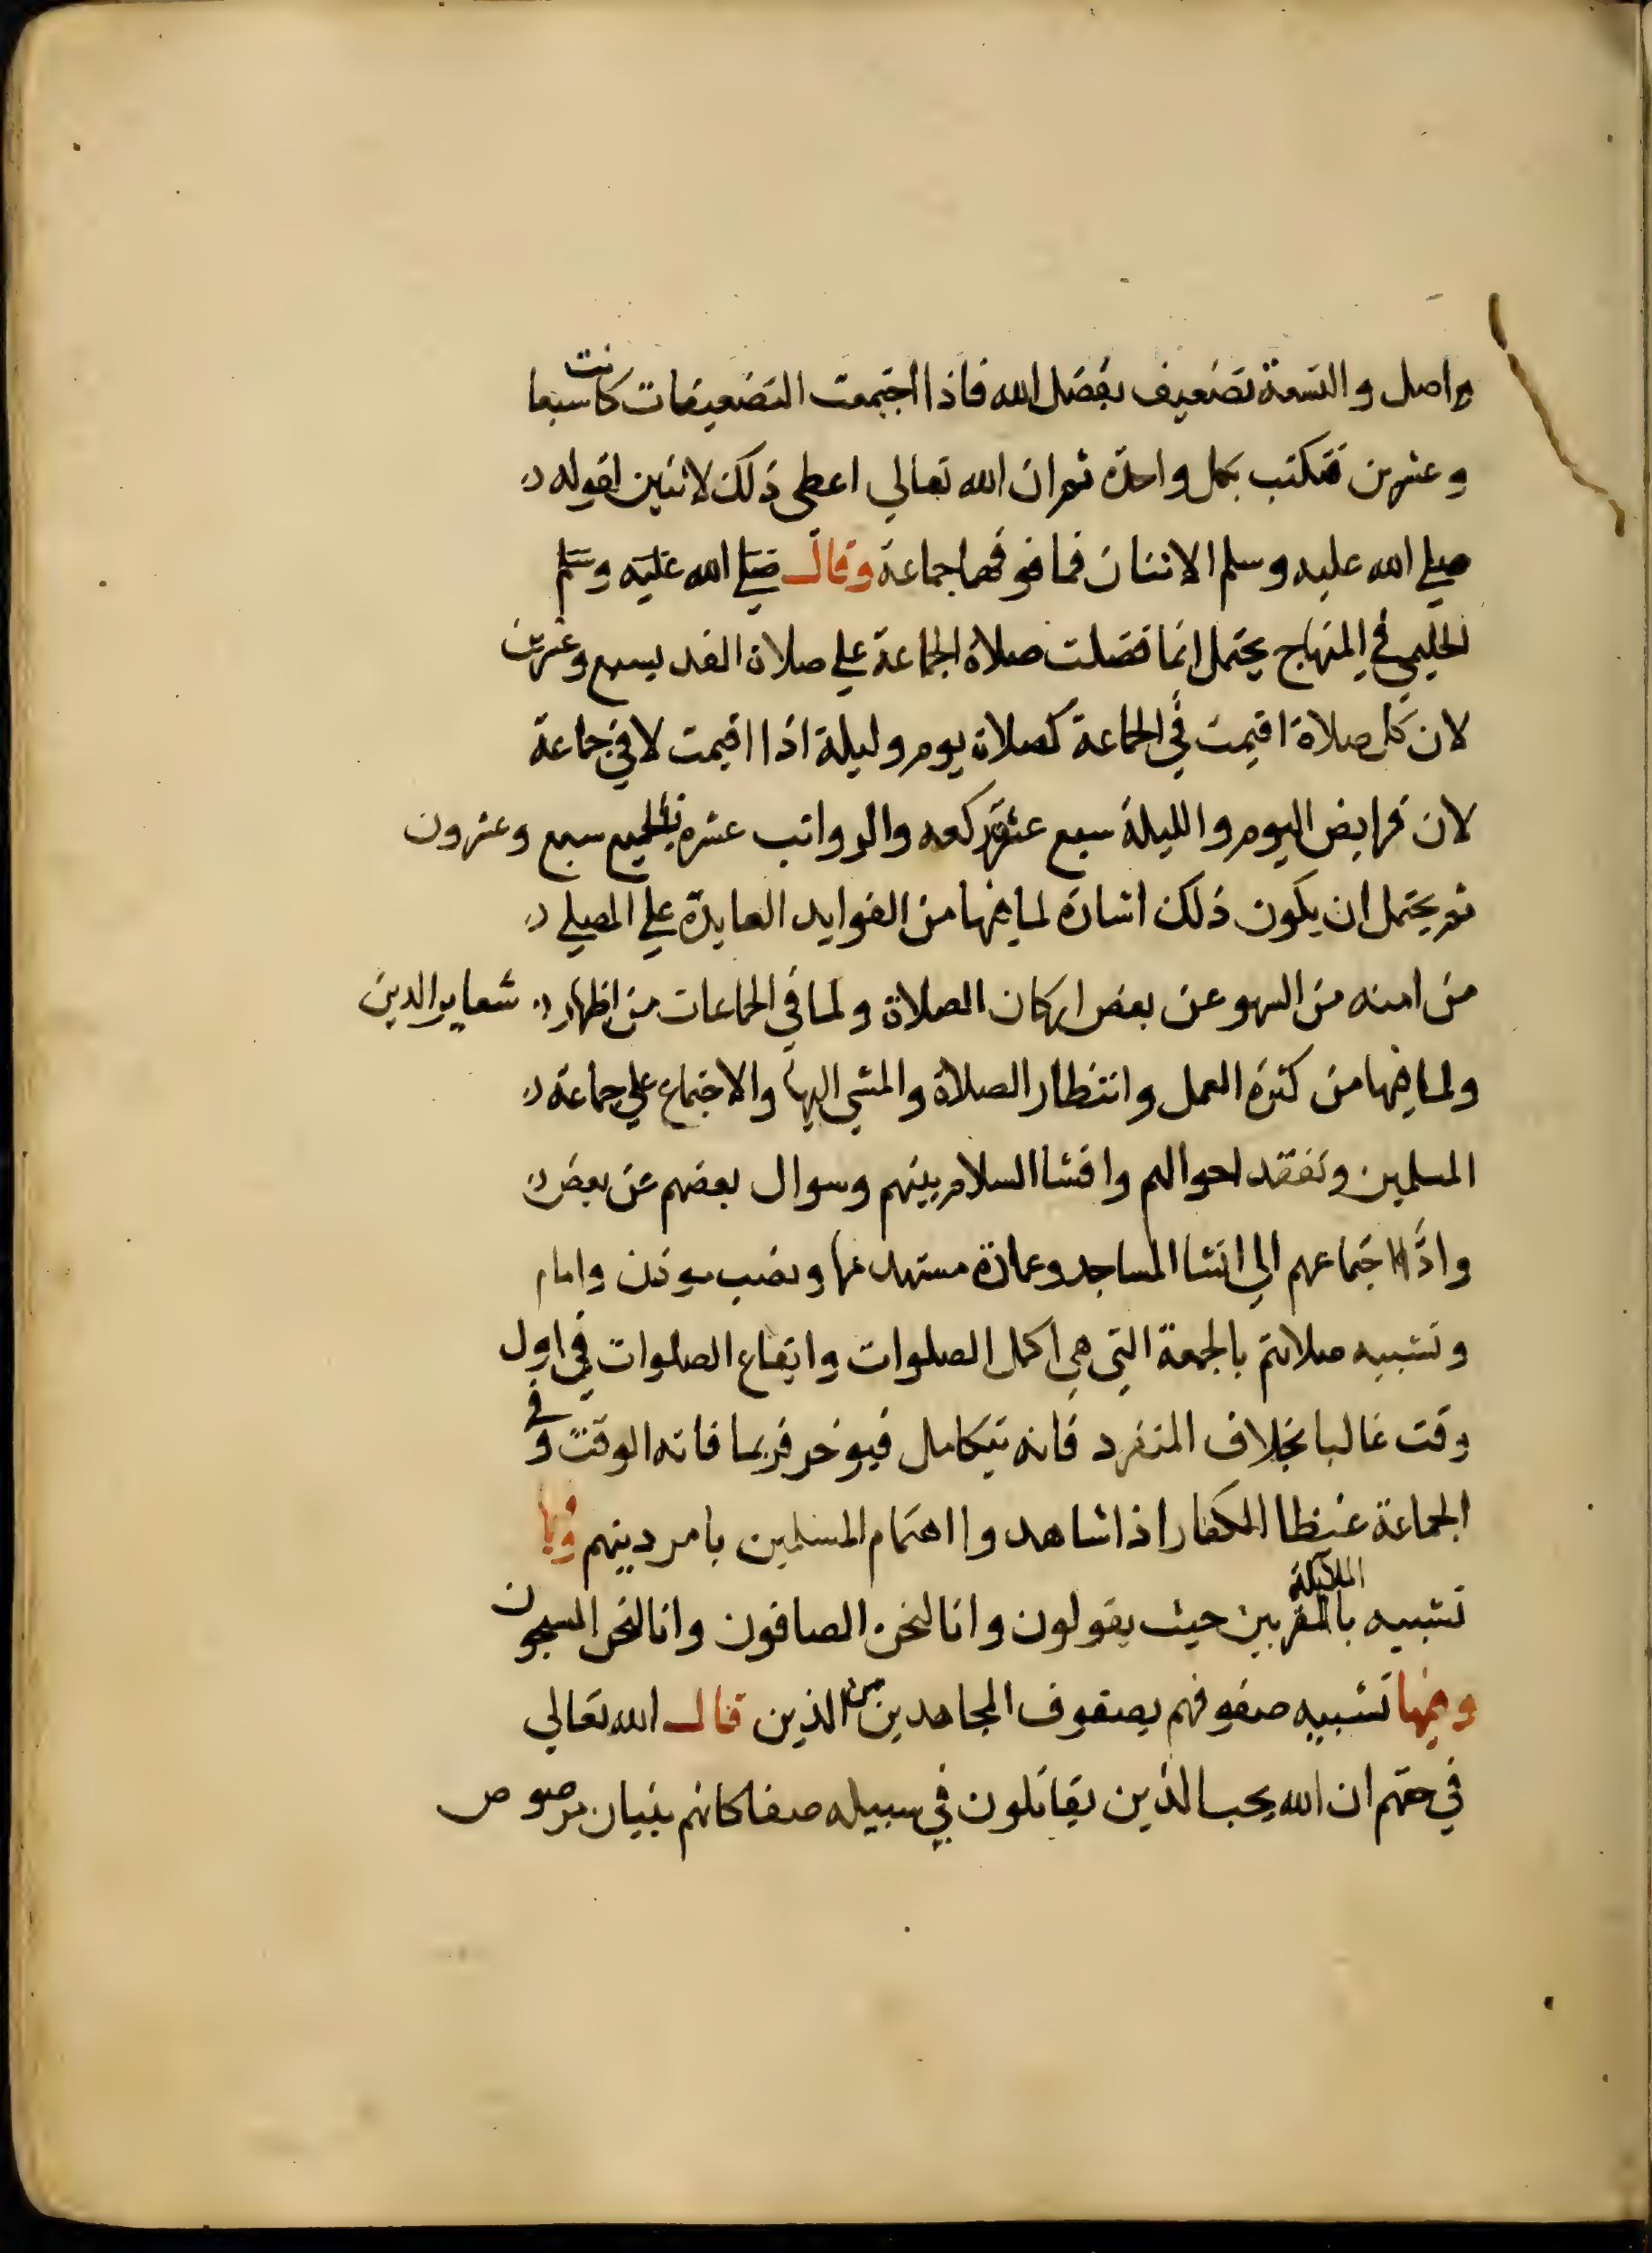 واصل والتسعة تضعيف بفضل الله فاذا اجتمعت التضعيفات كانت سبعا
وعشرين فتكتب بكل واحدة ثم ان الله تعالي اعطي ذلك لاثنين لقوله
صلي الله عليه وسلم الاثنان فما فوقهما جماعة وقال صلي الله عليه وسلم
الحليمي في المنهاج يحتمل انما فضلت صلاة الجماعة علي صلاة الفد بسبع وعشرين
لان كل صلاة اقيمت في الجماعة كصلاة يوم وليلة اذا اقيمت لا في جماعة
لان فرايض اليوم والليلة سبع عشرة ركعه والرواتب عشره فالجميع سبع وعشرون
ثم يحتمل ان يكون ذلك اشارة لما فيها من الفوايد العايدة علي المصلي
من امنه من السهو عن بعض اركان الصلاة ولما في الجماعات من اظهار شعاير الدين
ولما فيها من كثرة العمل وانتظار الصلاة والمشي اليها والاجتماع علي جماعة
المسلمين وتفقد احوالهم وافشا السلام بينهم وسوال بعضهم عن بعض
واذا اجتماعهم الي انشا المساجد وعمارة مستهدمها ونصب موذن وامام
وتشبيه صلاتهم بالجمعة التي هي اكمل الصلوات وايقاع الصلوات في اول
وقت غالبا بخلاف المنفرد فانه يتكاسل فيوخر فربما فاته الوقت وفي
الجماعة غيظا الكفار اذا شاهدوا اهتمام المسلمين بامر دينهم
تشبيه بالملايكة المقربين حيث يقولون وانا لنحن الصافون وانا لنحن المسبحون
وفيها تشبيه صفوفهم بصفوف المجاهدين من الذين قال الله تعالي
في حقهم ان الله يحب الذين يقاتلون في سبيله صفا كانهم بنيان مرصوص